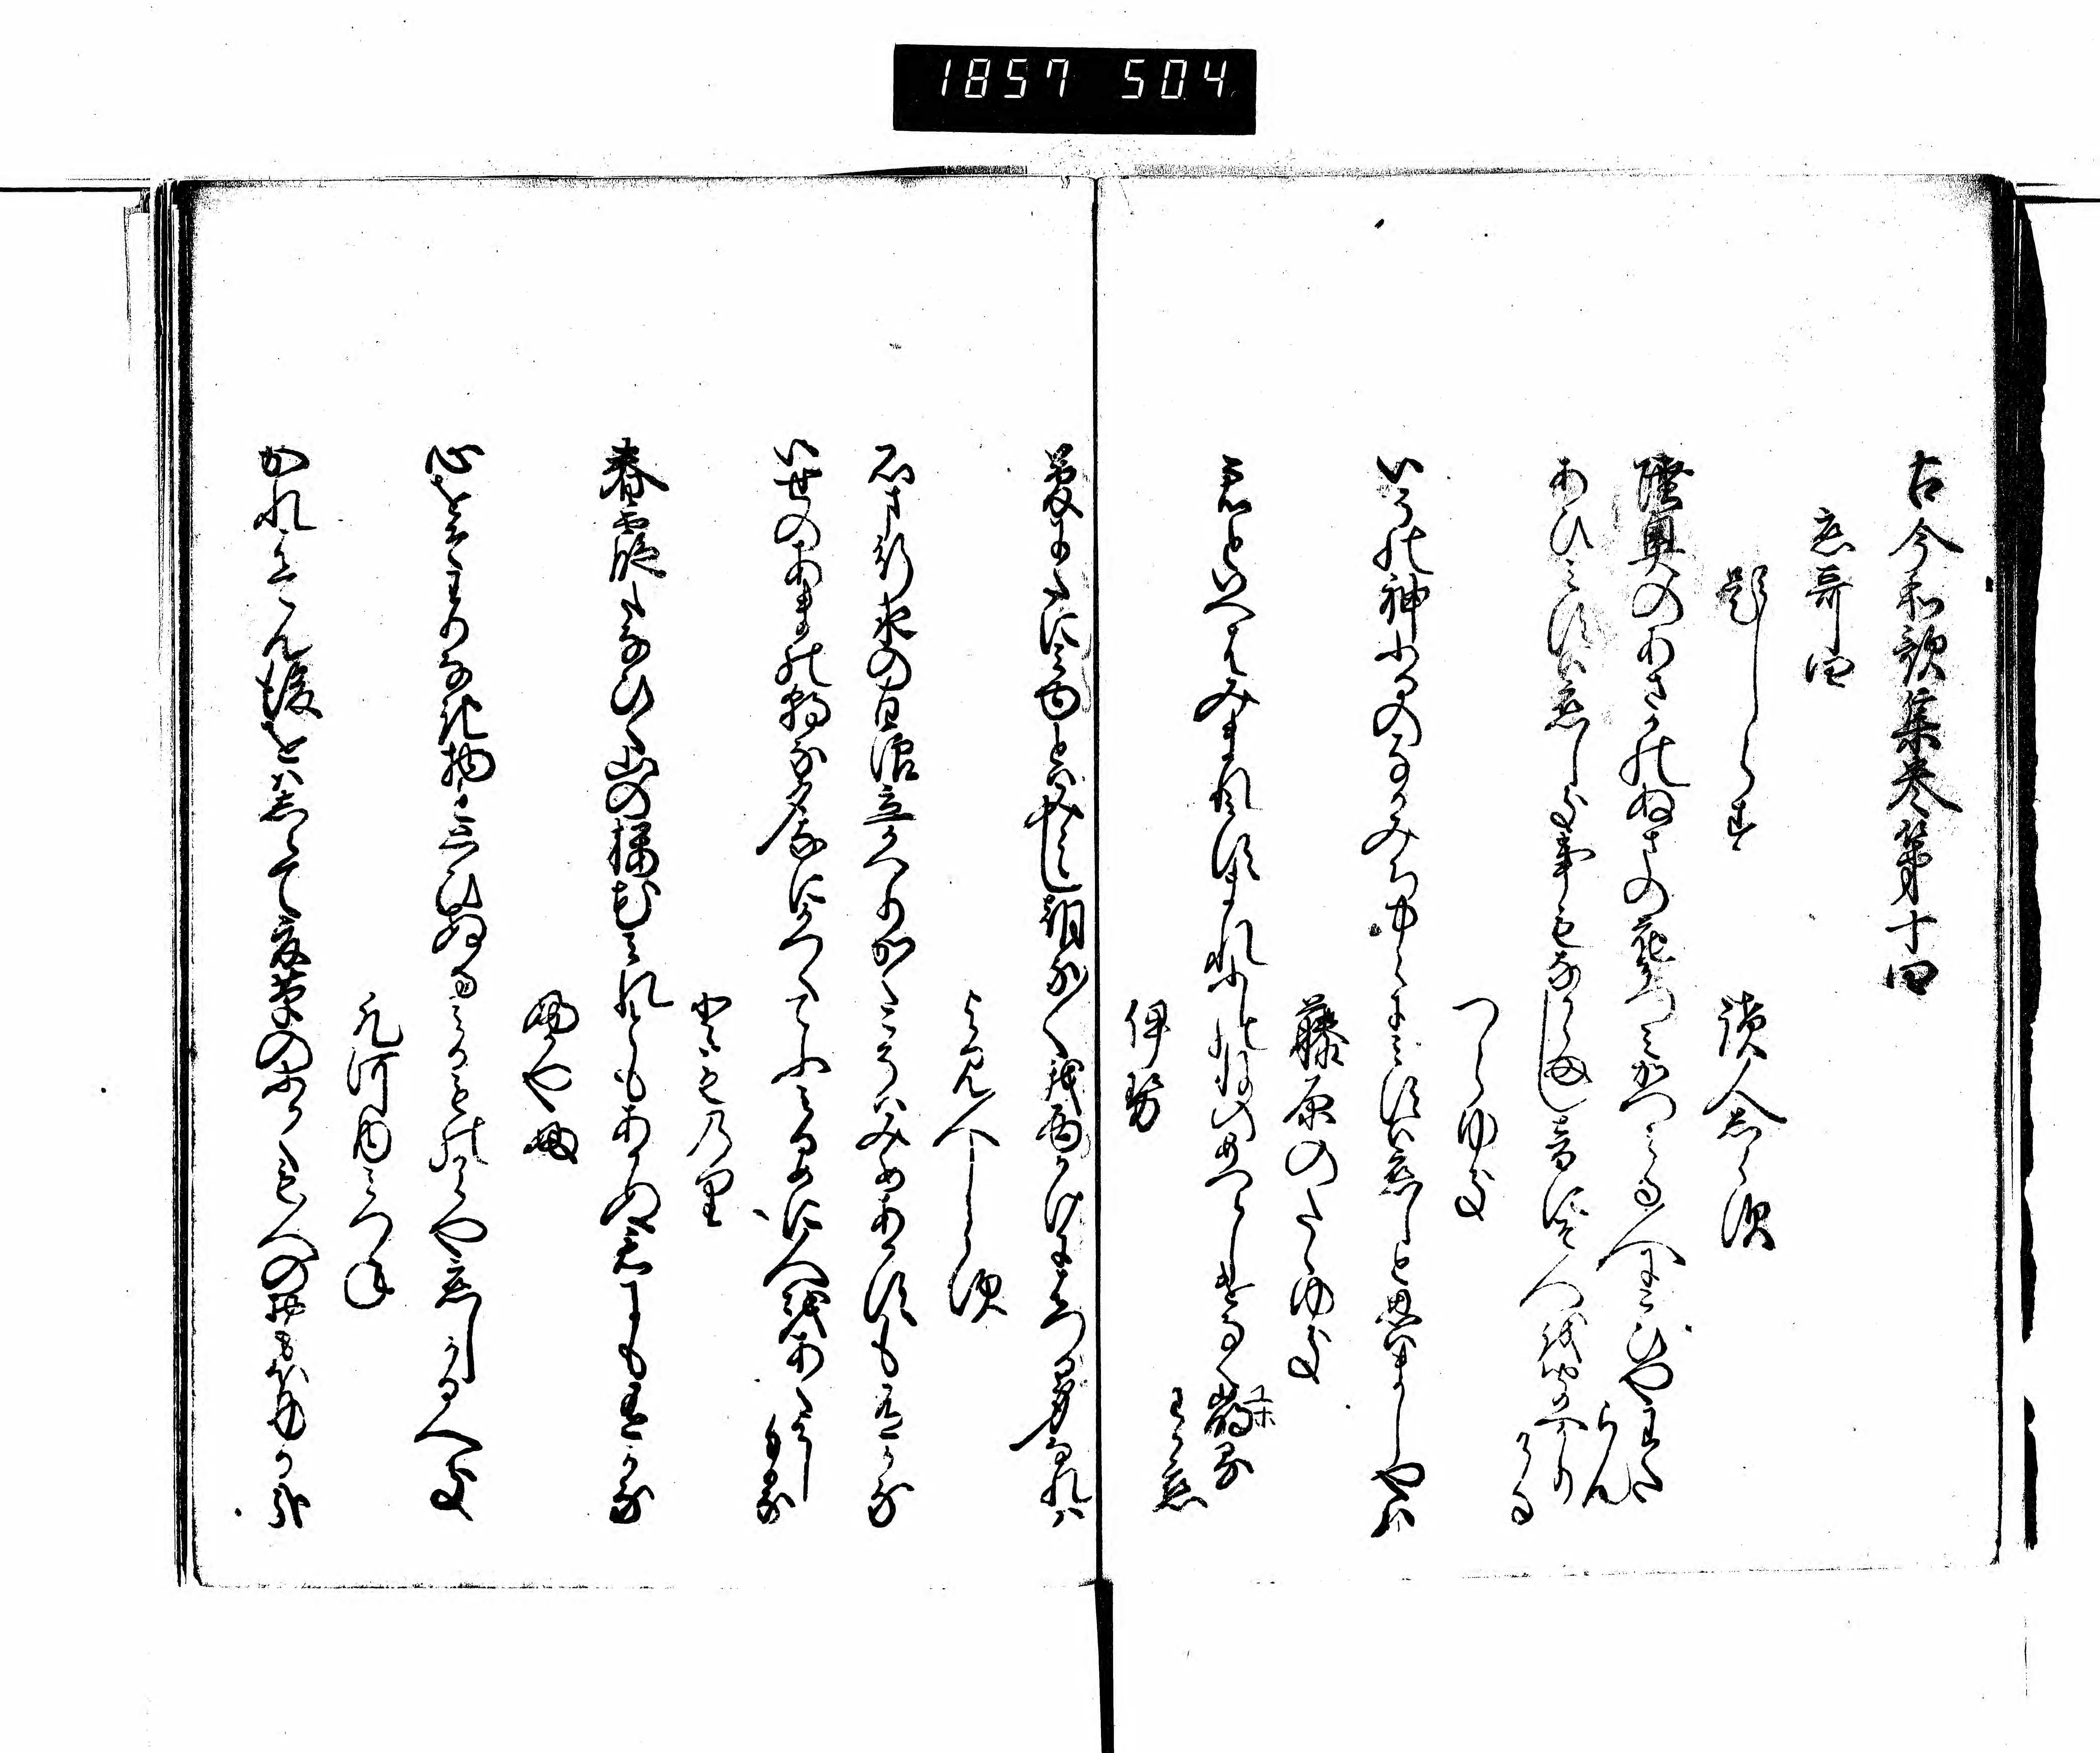 1857 504
古今和歌集巻第十四
恋哥四
題しらす
読人しらす
陸奥のあさかのぬまの花かつみかつみる人にこひやわたらん
あひみすは恋しき事もなからまし音にそ人を聞へかりける
つらゆき
いその神ふるのなかみち中々にみすは恋しと思はましやは
藤原のたゝゆき
君といへはみまれみすまれふしのねのめつらしけなくもゆるわか恋
伊勢
夢にたにみゆとはみえし朝な〱我面かけにはつる身なれは
よみ人しらす
石ま行水の白浪立かへりかくこそはみめあかすも有かな
いせのあまの朝な夕なにかつくてふみるめに人をあくよしもかな
とものり
春霞たなひく山の桜花みれともあかぬ君にも有かな
ふかやふ
心をそわりなき物と思ひぬるみる物からや恋しかるへき
凡河内みつね
かれはてん後をはしらて夏草のふかくも人のおもほゆるかな